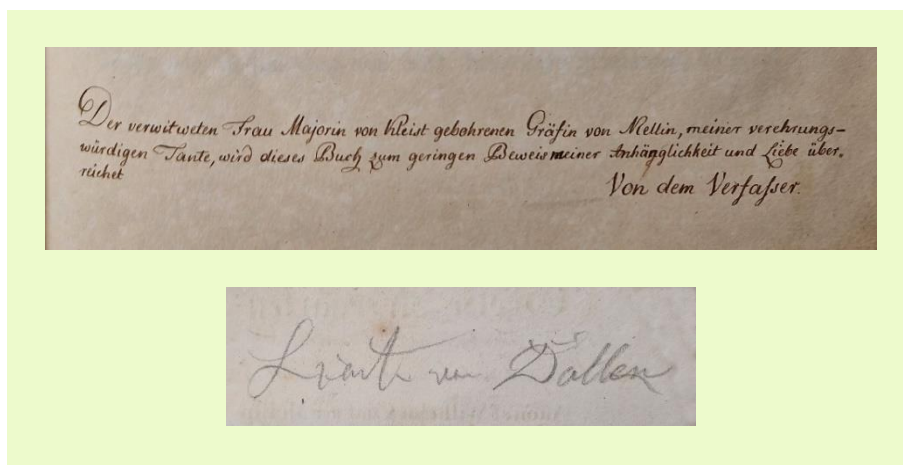 Der verwitweten Frau Majorin von Kleist gebohrenen Gräfin von Mellin, meiner verehrungs-
würdigen Tante, wird dieses Buch zum geringen Beweis meiner Anhänglichkeit und Liebe über-
reichet
Von dem Verfasser.
von Dollen